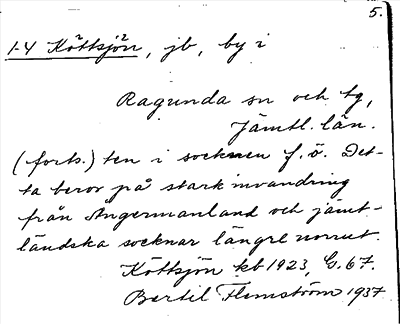 5.
1-4 Köttsjön, jb, by i
Ragunda sn och tg,
Jämtl. län.
(forts.) ten i socknen f.ö. Det-
ta beror på stark invandring
från Ångermanland och jämt-
ländska socknar längre norrut.
Köttsjön kb 1923, G. 67.
Bertil Flemström 1937